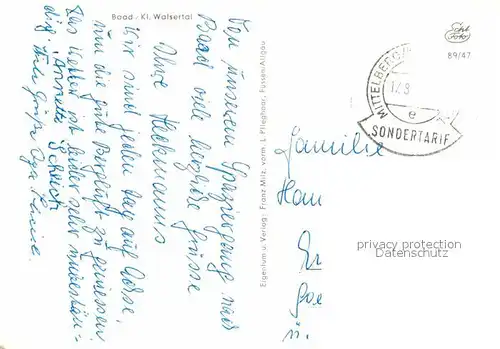 Baad. Kl. Walsertal
Von unserem Spaziergang nach
Baad viele herzliche Grüsse
Ihre Heckmanns
Wir sind jeden Tag auf Achse,
um die gute Bergluft zu geniessen
Das Wetter ist leider sehr unbestän-
dig. Viele Grüße
Eigentum u. Verlag: Franz Milz, vorm. L. Pfleghaar, Füssen/Allgäu
89/47
MITTELBERG
12.8
e
SONDERTARIF
Familie
privacy protection
Datenschutz